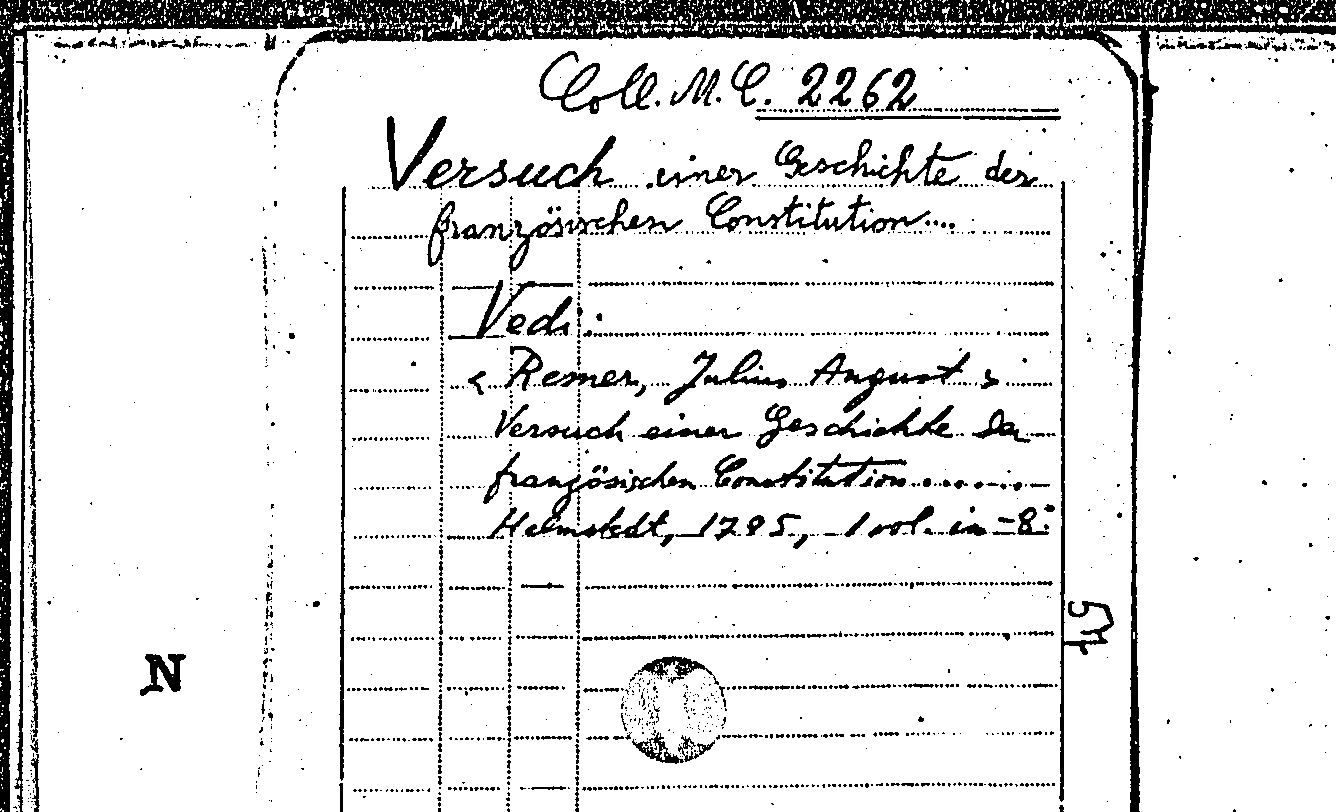 Coll. M. C. 2262
Versuch einer Geschichte der
französischen Constitution....
Vedi:
< Remer, Julius August >
Versuch einer Geschichte der
französischen Constitution........
Helmstedt, 1795, 1 vol. in-8°
N